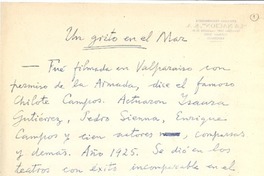 (1)
Un grito en el Mar
— Fué filmada en Valparaíso con
permiso de la Armada, dice el famoso
Chilote Campos. Actuaron Isaura
Gutiérrez, Pedro Sienna, Enriqueta
Campos y cien actores, comparsas
y demás. Año 1925. Se dió en los
teatros con éxito incomparable en el